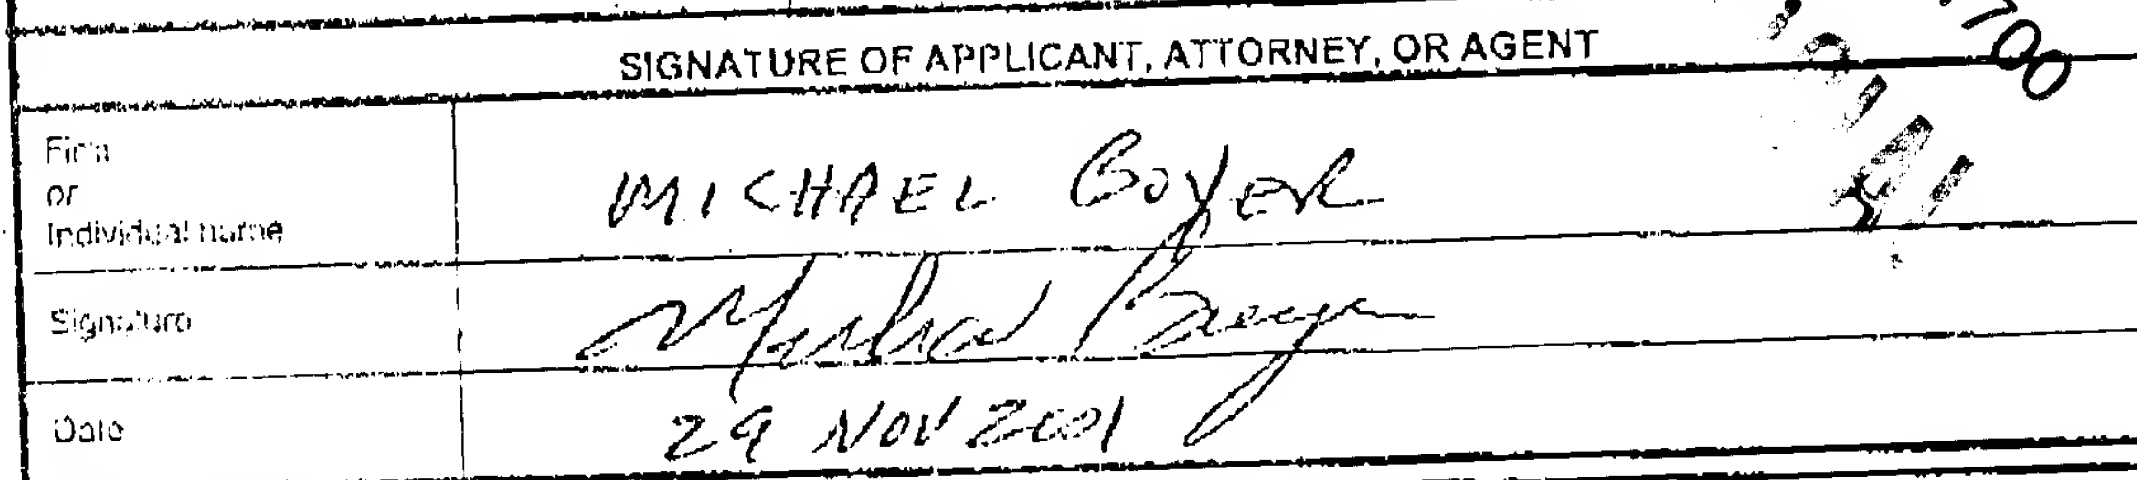 SIGNATURE OF APPLICANT, ATTORNEY, OR AGENT
Firm
or
Individual name
MICHAEL BOYER
Signature
Michael Boyer
Date
29 NOV 2001